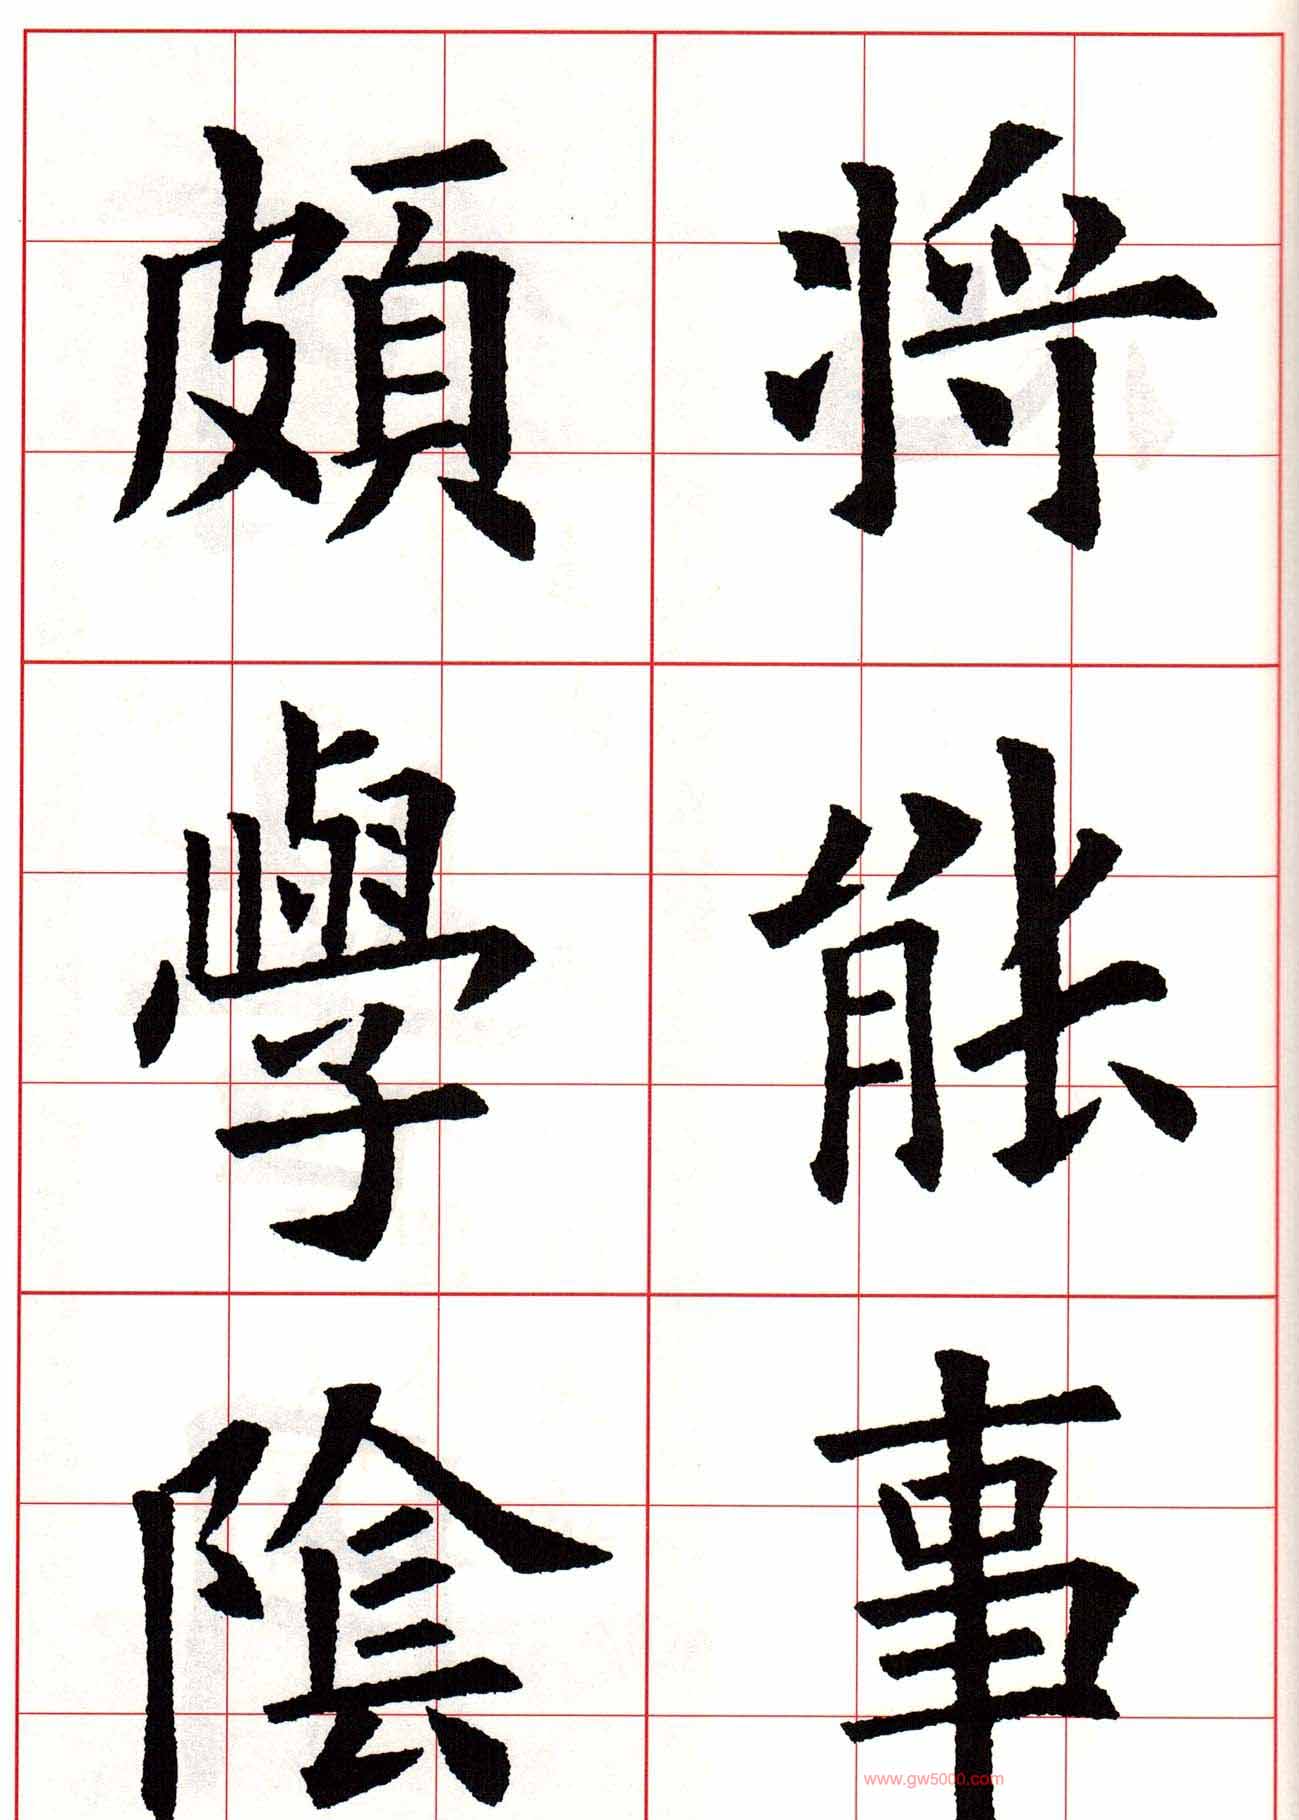 将能事
頗學陰
www.gw5000.com